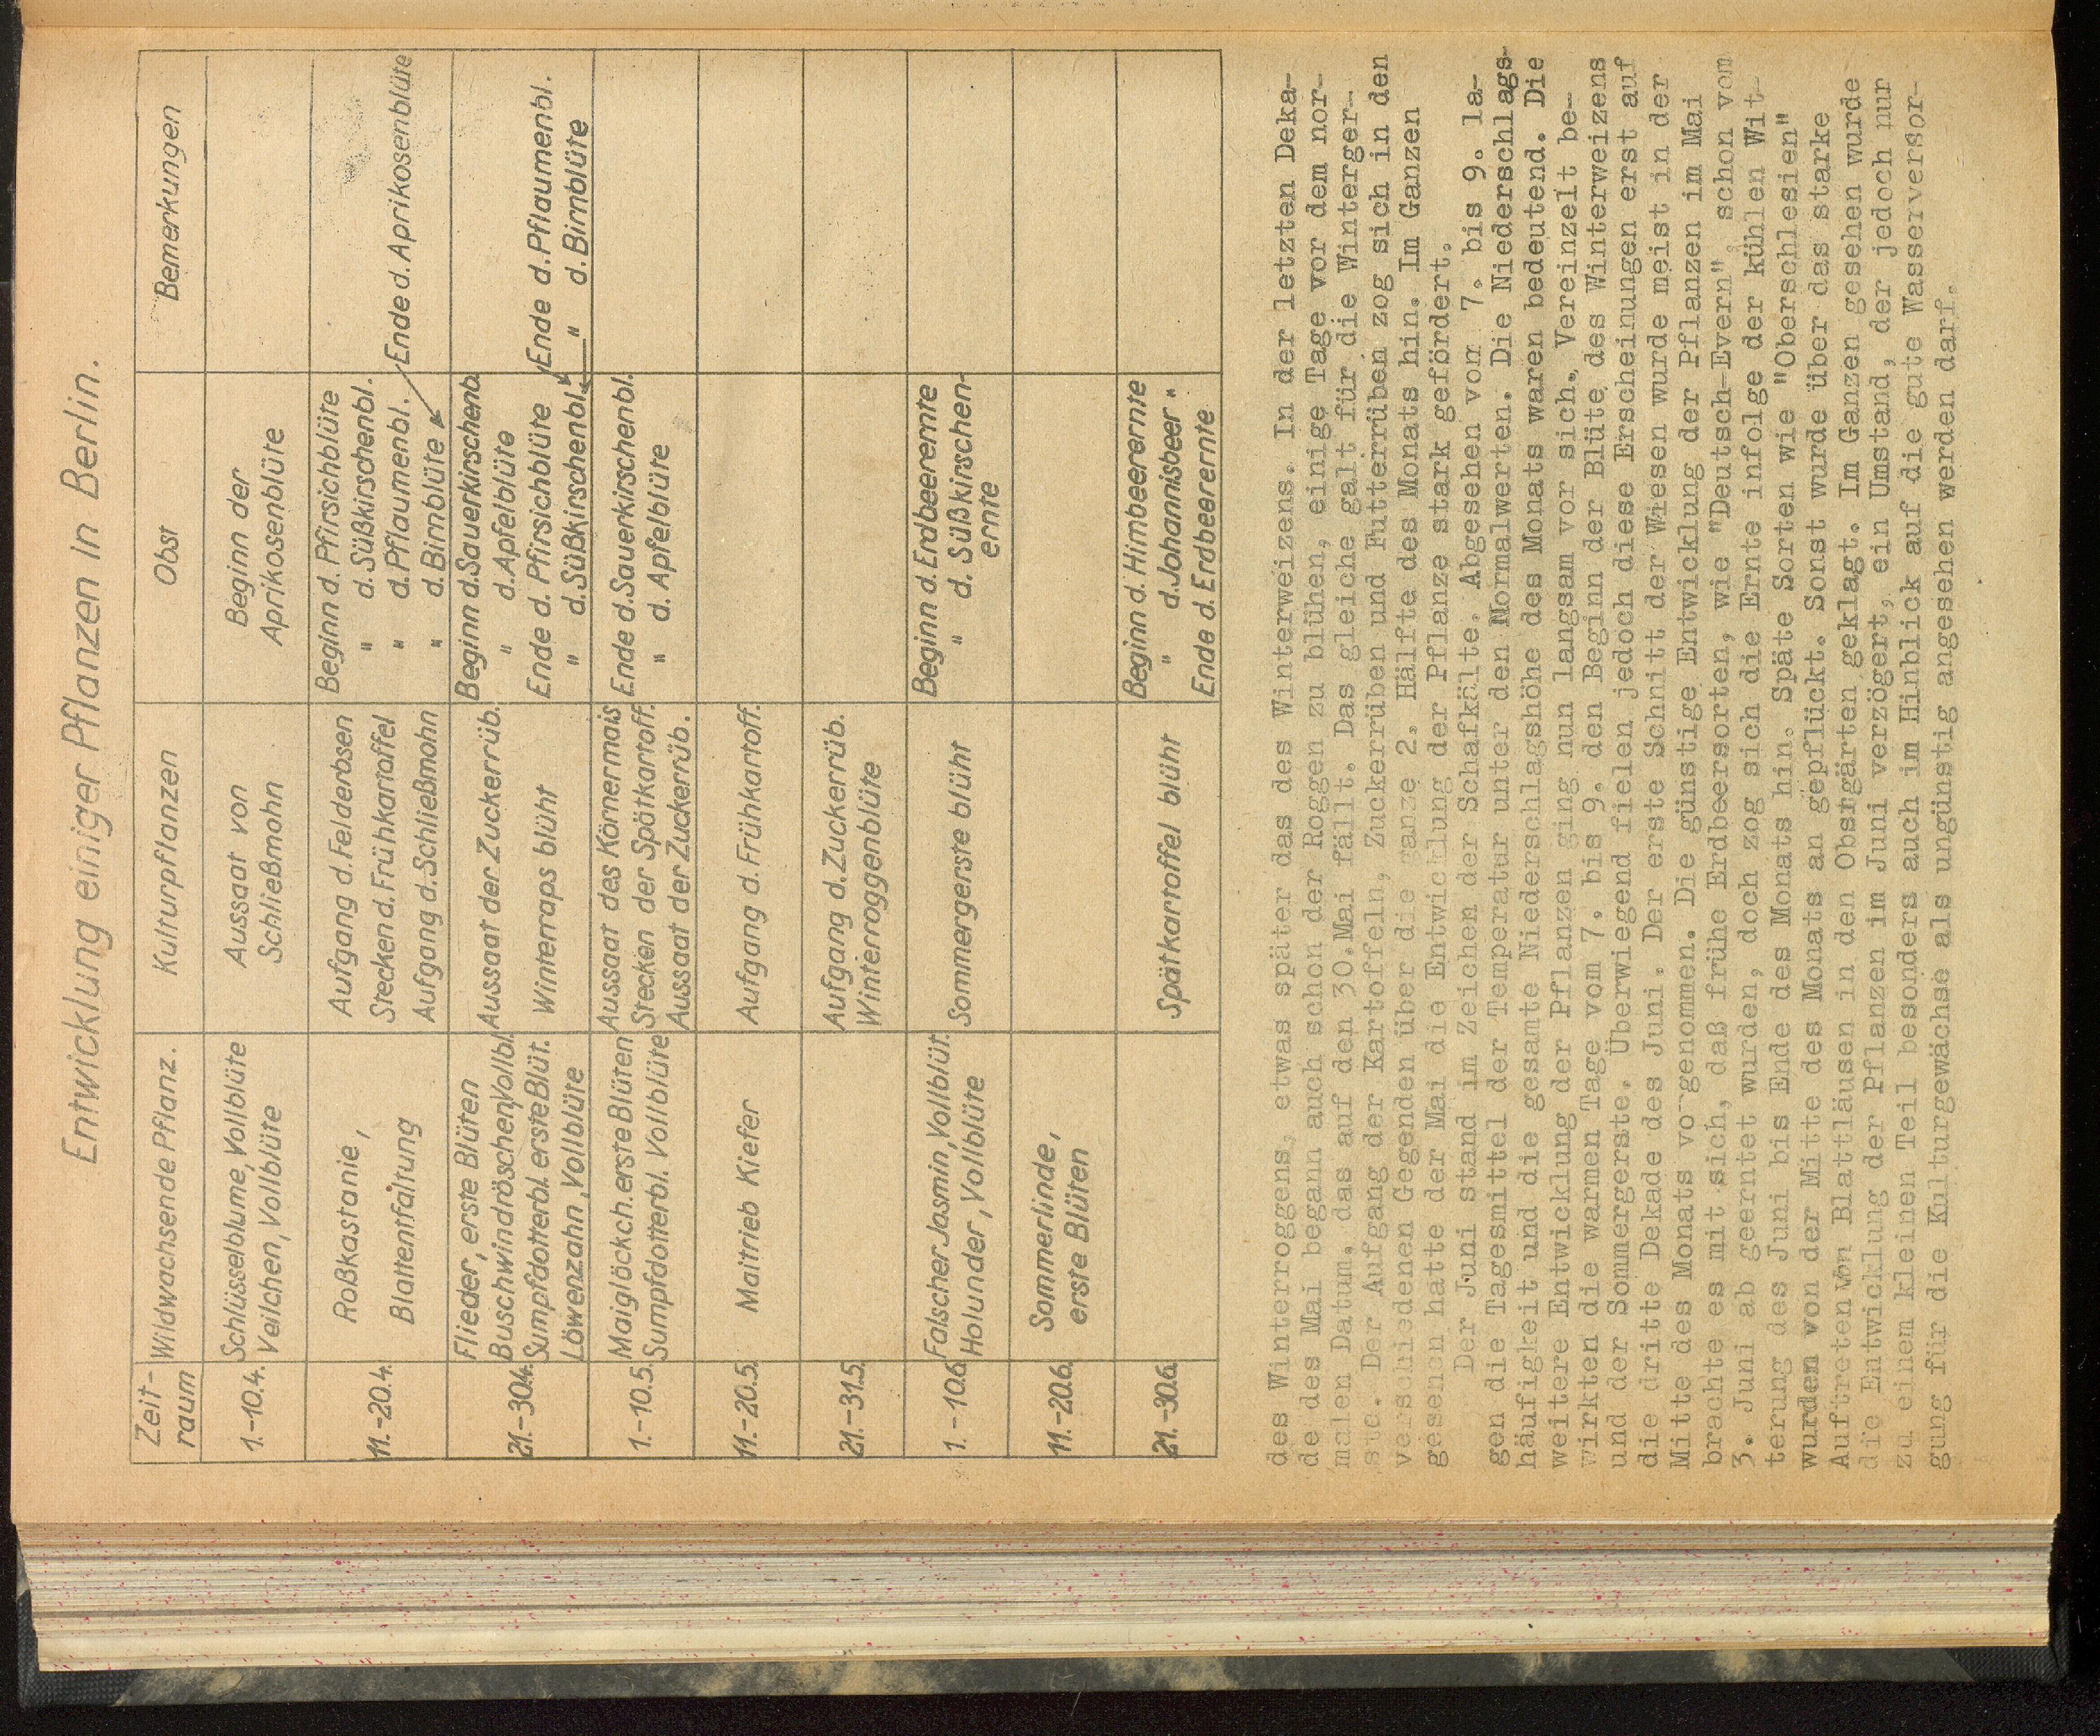 Entwicklung einiger Pflanzen in Berlin.
Zeit-
raum
Wildwachsende Pflanz.
Kulturpflanzen
Obst
Bemerkungen
1.-10.4.
Schlüsselblume, Vollblüte
Veilchen, Vollblüte
Aussaat von
Schließmohn
Beginn der
Aprikosenblüte
11.-20.4.
Roßkastanie,
Blattentfaltung
Aufgang d. Felderbsen
Stecken d. Frühkartoffel
Aufgang d. Schließmohn
Beginn d. Pfirsichblüte
" d. Süßkirschenbl.
" d. Pflaumenbl.
" d. Birnblüte
Ende d. Aprikosenblüte
21.-30.4.
Flieder, erste Blüten
Buschwindröschen, Vollbl.
Sumpfdotterbl. erste Blüt.
Löwenzahn, Vollblüte
Aussaat der Zuckerrüb.
Winterraps blüht
Beginn d. Sauerkirschenb.
" d. Apfelblüte
Ende d. Pfirsichblüte
" d. Süßkirschenbl.
Ende d. Pflaumenbl.
" d. Birnblüte
1.-10.5.
Maiglöckch. erste Blüten
Sumpfdotterbl. Vollblüte
Aussaat des Körnermais
Stecken der Spätkartoff.
Aussaat der Zuckerrüb.
Ende d. Sauerkirschenbl.
" d. Apfelblüte
11.-20.5.
Maitrieb Kiefer
Aufgang d. Frühkartoff.
21.-31.5.
Aufgang d. Zuckerrüb.
Winterroggenblüte
1.-10.6.
Falscher Jasmin, Vollblüt.
Holunder, Vollblüte
Sommergerste blüht
Beginn d. Erdbeerernte
" d. Süßkirschen-
ernte
11.-20.6.
Sommerlinde,
erste Blüten
21.-30.6.
Spätkartoffel blüht
Beginn d. Himbeerernte
" d. Johannisbeer "
Ende d. Erdbeerernte
des Winterroggens, etwas später das des Winterweizens. In der letzten Deka-
de des Mai begann auch schon der Roggen zu blühen, einige Tage vor dem nor-
malen Datum, das auf den 30.Mai fällt. Das gleiche galt für die Winterger-
ste. Der Aufgang der Kartoffeln, Zuckerrüben und Futterrüben zog sich in den
verschiedenen Gegenden über die ganze 2. Hälfte des Monats hin. Im Ganzen
gesehen hatte der Mai die Entwicklung der Pflanze stark gefördert.
Der Juni stand im Zeichen der Schafkälte. Abgesehen vom 7. bis 9. la-
gen die Tagesmittel der Temperatur unter den Normalwerten. Die Niederschlags-
häufigkeit und die gesamte Niederschlagshöhe des Monats waren bedeutend. Die
weitere Entwicklung der Pflanzen ging nun langsam vor sich. Vereinzelt be-
wirkten die warmen Tage vom 7. bis 9. den Beginn der Blüte des Winterweizens
und der Sommergerste. Überwiegend fielen jedoch diese Erscheinungen erst auf
die dritte Dekade des Juni. Der erste Schnitt der Wiesen wurde meist in der
Mitte des Monats vorgenommen. Die günstige Entwicklung der Pflanzen im Mai
brachte es mit sich, daß frühe Erdbeersorten, wie "Deutsch-Evern", schon vom
3. Juni ab geerntet wurden, doch zog sich die Ernte infolge der kühlen Wit-
terung des Juni bis Ende des Monats hin. Späte Sorten wie "Oberschlesien"
wurden von der Mitte des Monats an gepflückt. Sonst wurde über das starke
Auftreten von Blattläusen in den Obstgärten geklagt. Im Ganzen gesehen wurde
die Entwicklung der Pflanzen im Juni verzögert, ein Umstand, der jedoch nur
zu einem kleinen Teil besonders auch im Hinblick auf die gute Wasserversor-
gung für die Kulturgewächse als ungünstig angesehen werden darf.